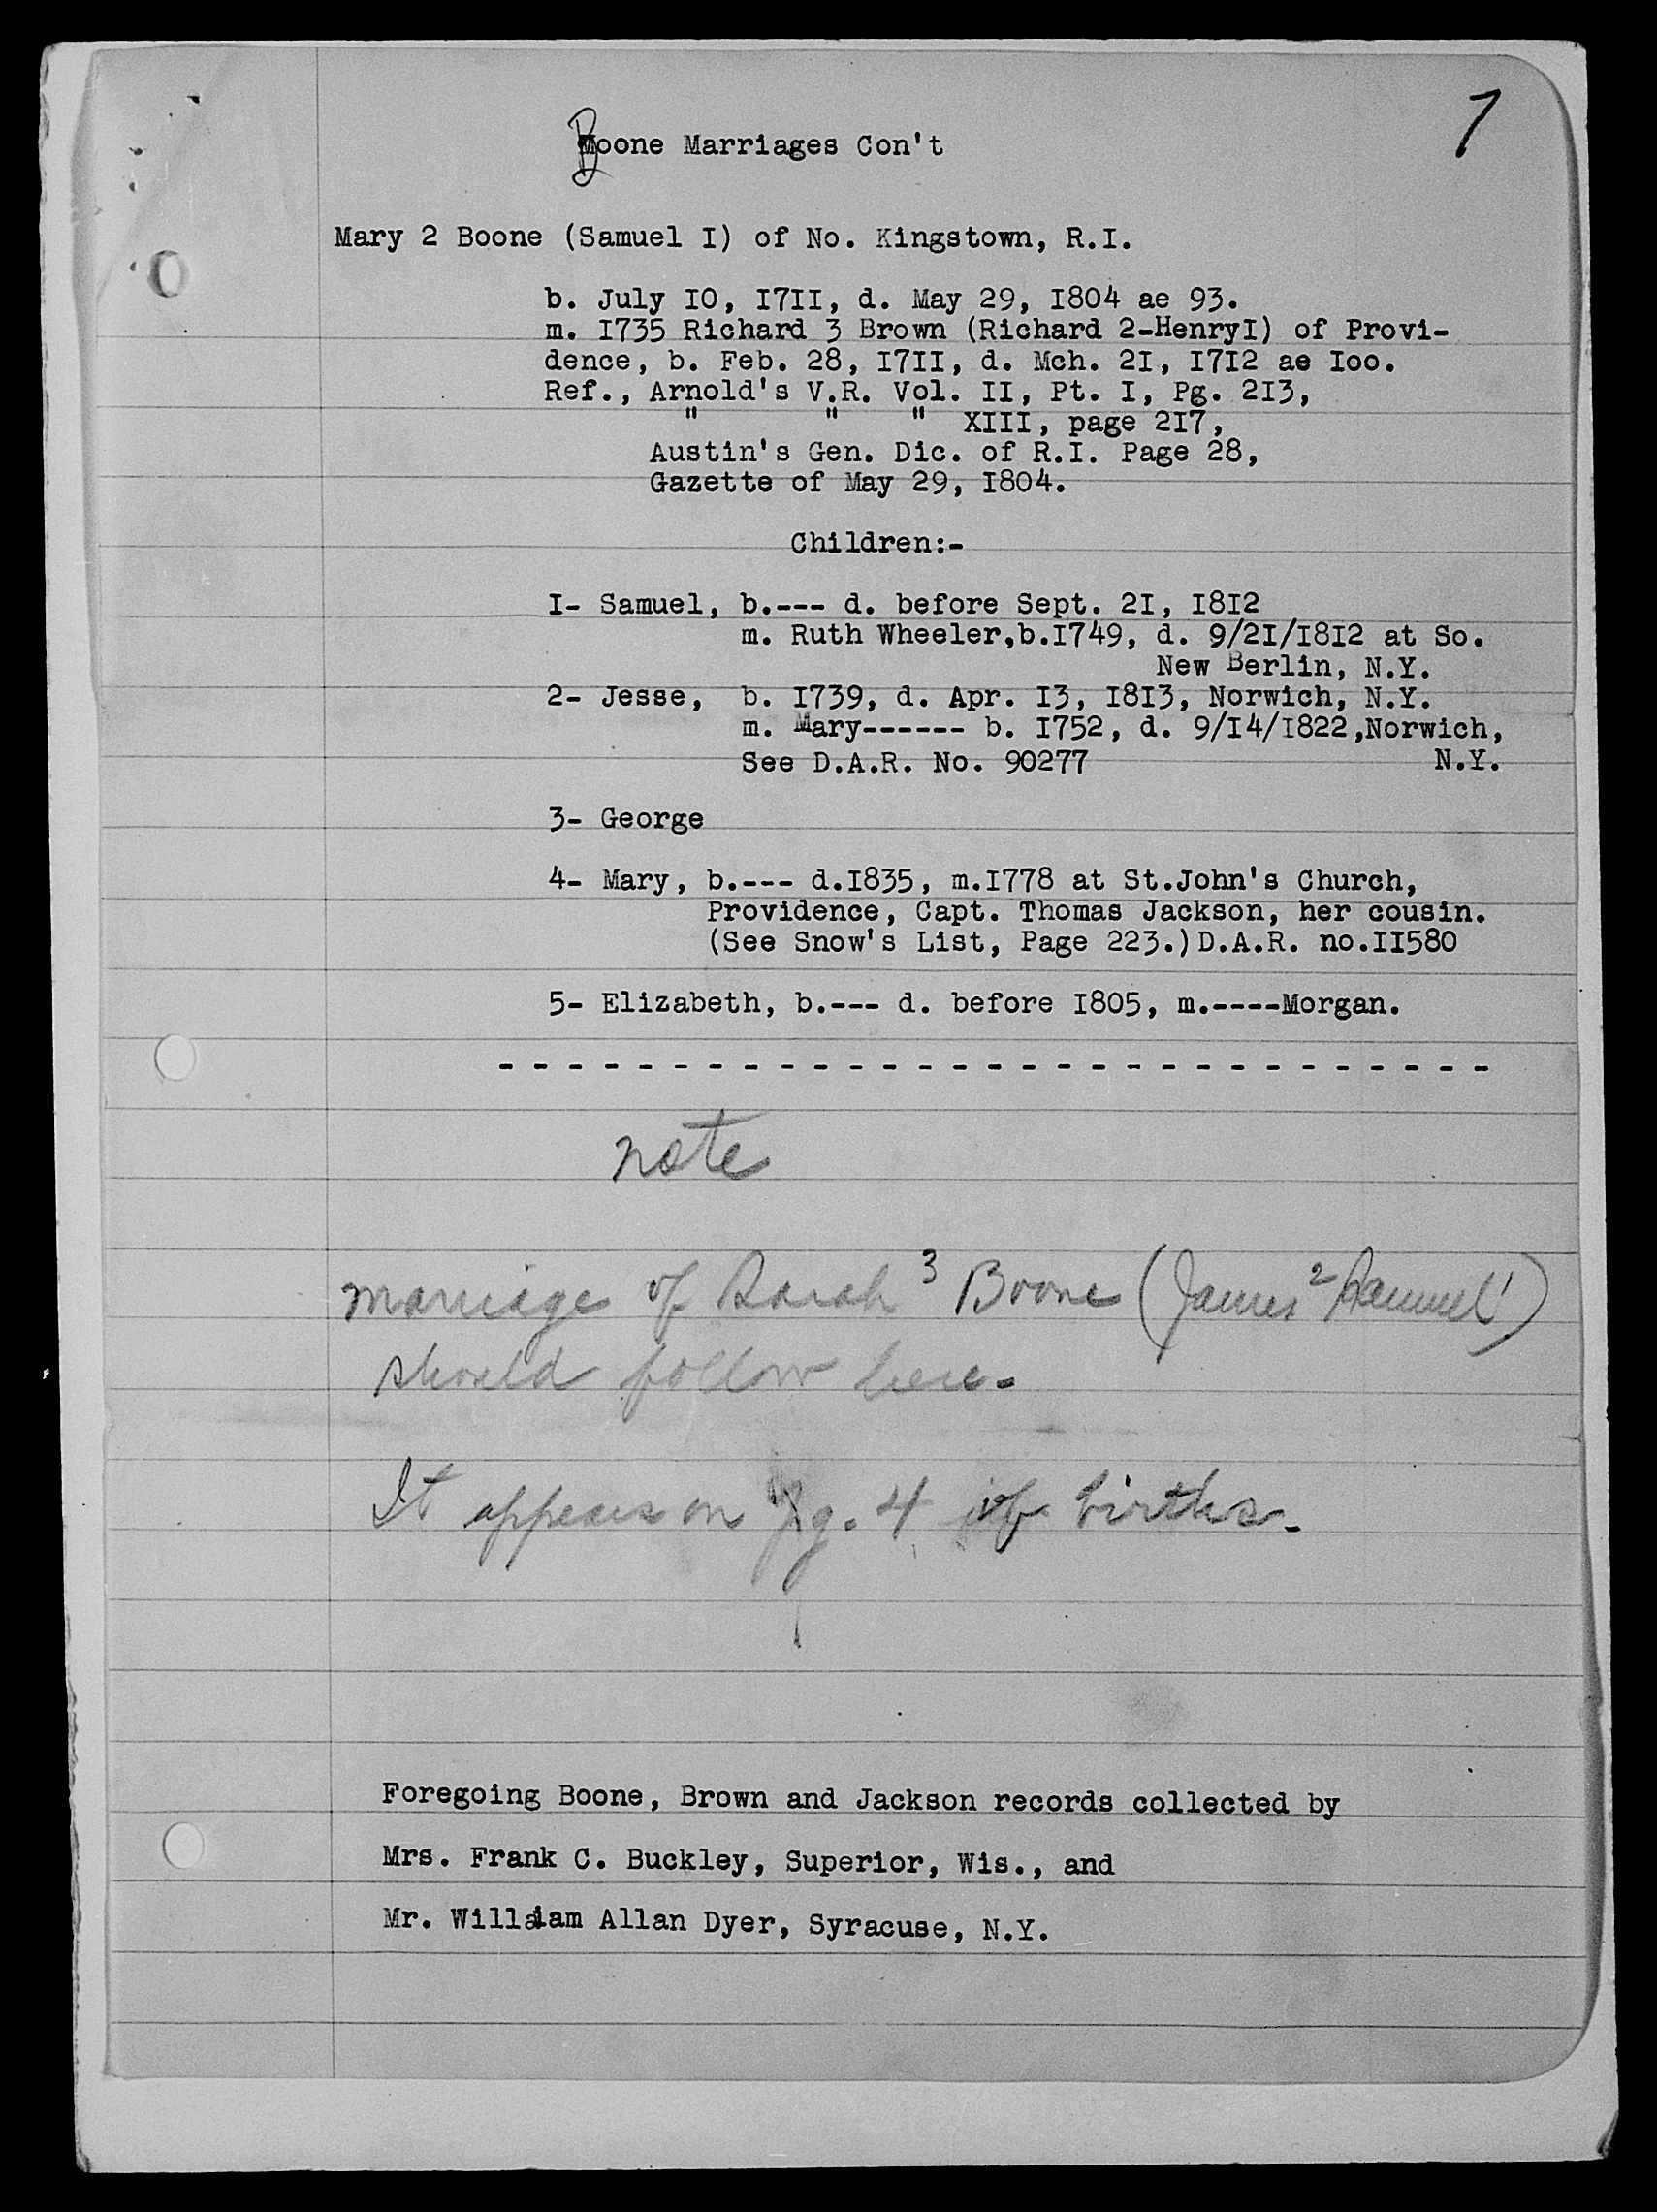 7
Boone Marriages Con't
Mary 2 Boone (Samuel I) of No. Kingstown, R.I.
b. July IO, I7II, d. May 29, I804 ae 93.
m. I735 Richard 3 Brown (Richard 2-HenryI) of Provi-
dence, b. Feb. 28, I7II, d. Mch. 2I, I7I2 ae Ioo.
Ref., Arnold's V.R. Vol. II, Pt. I, Pg. 2I3,
" " " XIII, page 2I7,
Austin's Gen. Dic. of R.I. Page 28,
Gazette of May 29, I804.
Children:-
I- Samuel, b.--- d. before Sept. 2I, I8I2
m. Ruth Wheeler,b.I749, d. 9/2I/I8I2 at So.
New Berlin, N.Y.
2- Jesse, b. I739, d. Apr. I3, I8I3, Norwich, N.Y.
m. Mary------ b. I752, d. 9/I4/I822,Norwich,
See D.A.R. No. 90277 N.Y.
3- George
4- Mary, b.--- d.I835, m.I778 at St.John's Church,
Providence, Capt. Thomas Jackson, her cousin.
(See Snow's List, Page 223.)D.A.R. no.II580
5- Elizabeth, b.--- d. before I805, m.----Morgan.
- - - - - - - - - - - - - - - - - - - - - - - - - - - - -
note
marriage of Sarah 3 Boone (James 2 Samuel 1)
should follow here.
It appears on Pg. 4 of births.
Foregoing Boone, Brown and Jackson records collected by
Mrs. Frank C. Buckley, Superior, Wis., and
Mr. William Allan Dyer, Syracuse, N.Y.